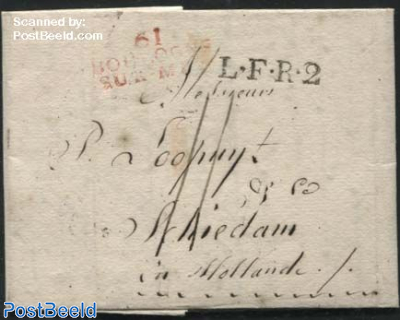 Scanned by:
PostBeeld.com
61
BOULOGNE
SUR-MER
L.F.R.2
Messieurs
P. Loopuyt
& Co
Schiedam
in Hollande
PostBeeld